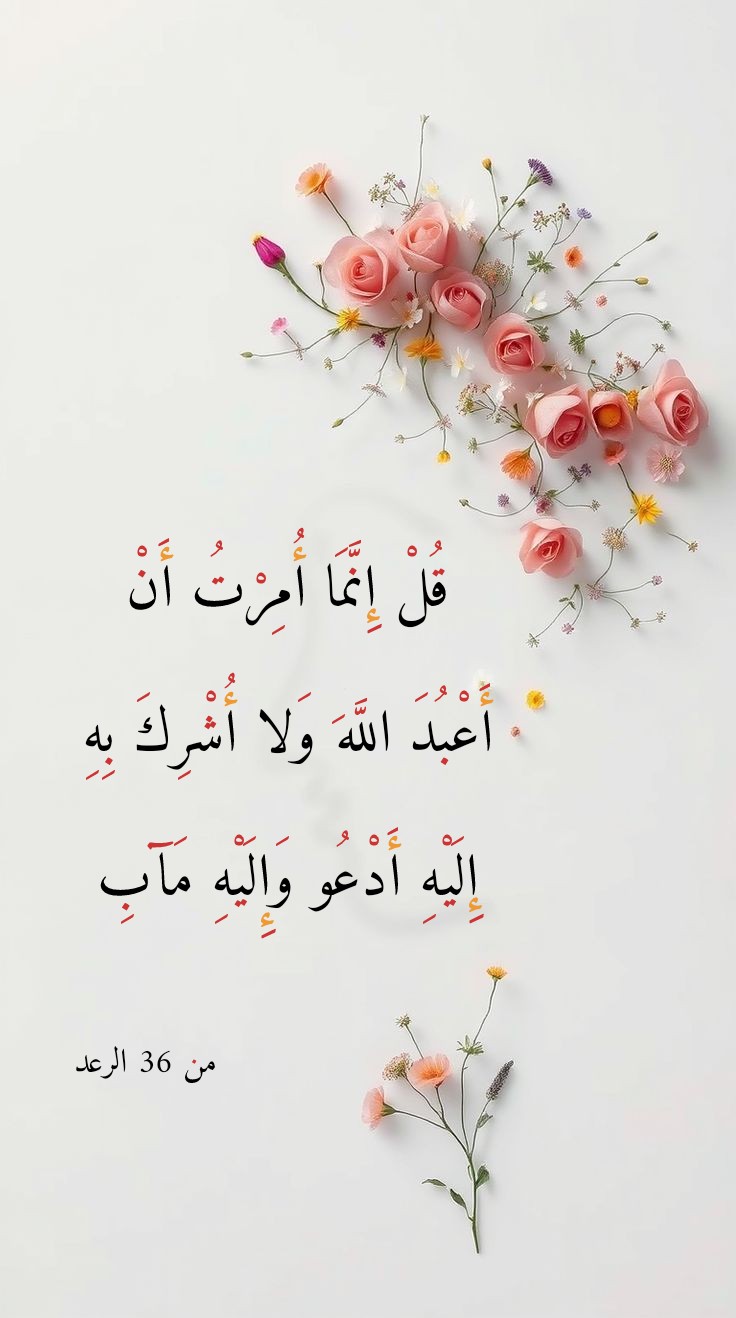 قُلْ إِنَّمَا أُمِرْتُ أَنْ
أَعْبُدَ اللَّهَ وَلا أُشْرِكَ بِهِ
إِلَيْهِ أَدْعُو وَإِلَيْهِ مَآبِ
من 36 الرعد